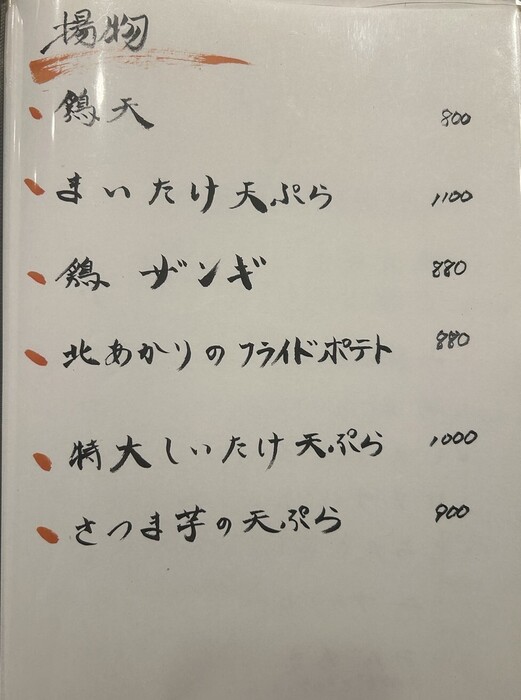 揚物
鶏天 800
まいたけ天ぷら 1100
鶏 ザンギ 880
北あかりのフライドポテト 880
特大しいたけ天ぷら 1000
さつま芋の天ぷら 900